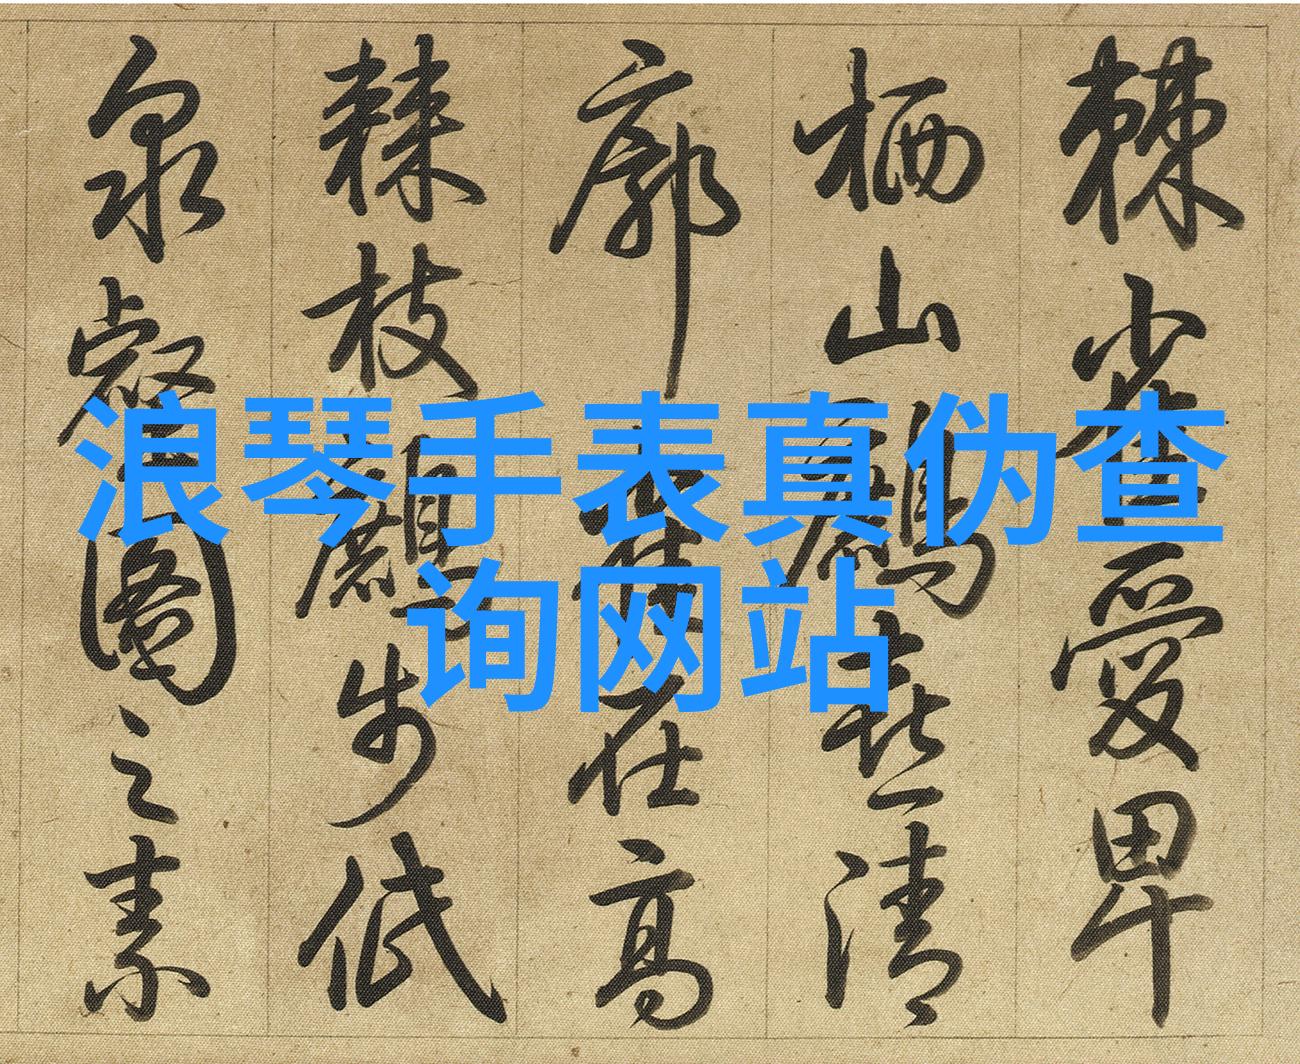 浪琴手表真伪查
询网站
棘雀愛卑
栖山鷓喜清
廓在高
棘枝顧步低
泉壑圖之素